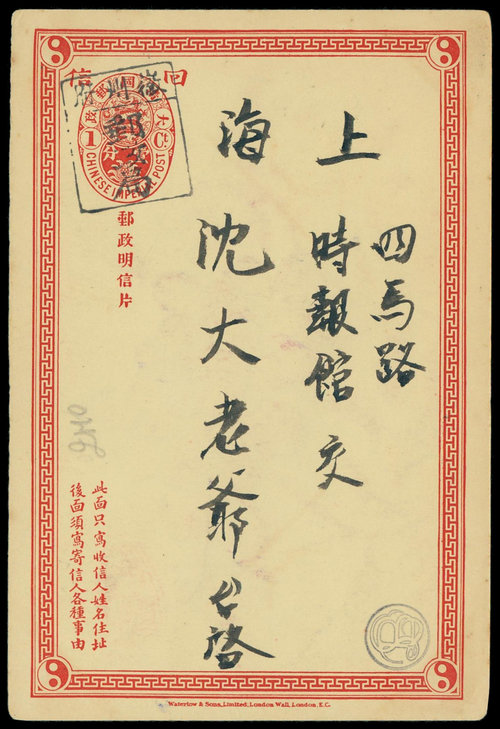 回信
四馬路
上時報館交
海沈大老爺台啓
郵政局
1
CHINESE IMPERIAL POST
郵政明信片
此面只寫收信人姓名住址
後面須寫寄信人各種事由
Waterlow & Sons, Limited, London Wall, London, E.C.